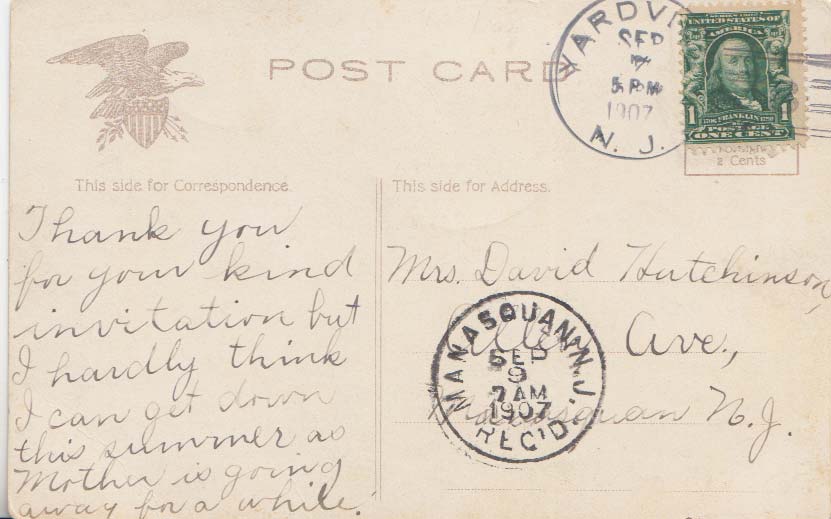 POST CARD
YARDVI
SEP
7
5 PM
1907
N. J.
SERIES 1902
UNITED STATES OF
AMERICA
1 1
1706 FRANKLIN 1790
POSTAGE
ONE CENT
2 Cents
This side for Correspondence.
This side for Address.
Thank you
for your kind
invitation but
I hardly think
I can get down
this summer as
Mother is going
away for a while.
Mrs. David Hutchinson,
Ave.,
Manasquan N.J.
MANASQUAN, N.J.
SEP
9
7 AM
1907
REC'D.